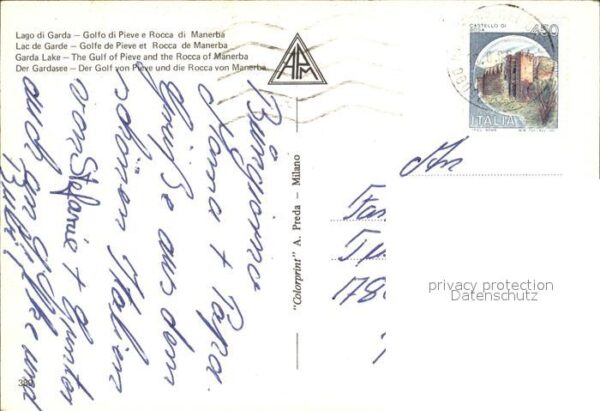 Lago di Garda — Golfo di Pieve e Rocca di Manerba
Lac de Garde — Golfe de Pieve et Rocca de Manerba
Garda Lake — The Gulf of Pieve and the Rocca of Manerba
Der Gardasee — Der Golf von Pieve und die Rocca von Manerba
APM
CASTELLO DI
450
ITALIA
Büngiorno
Mama + Papa.
Grüße aus dem
schönen Italien
von Stefanie + Günter
auch an und
An
Fam
178
"Colorprint" A. Preda — Milano
privacy protection
Datenschutz